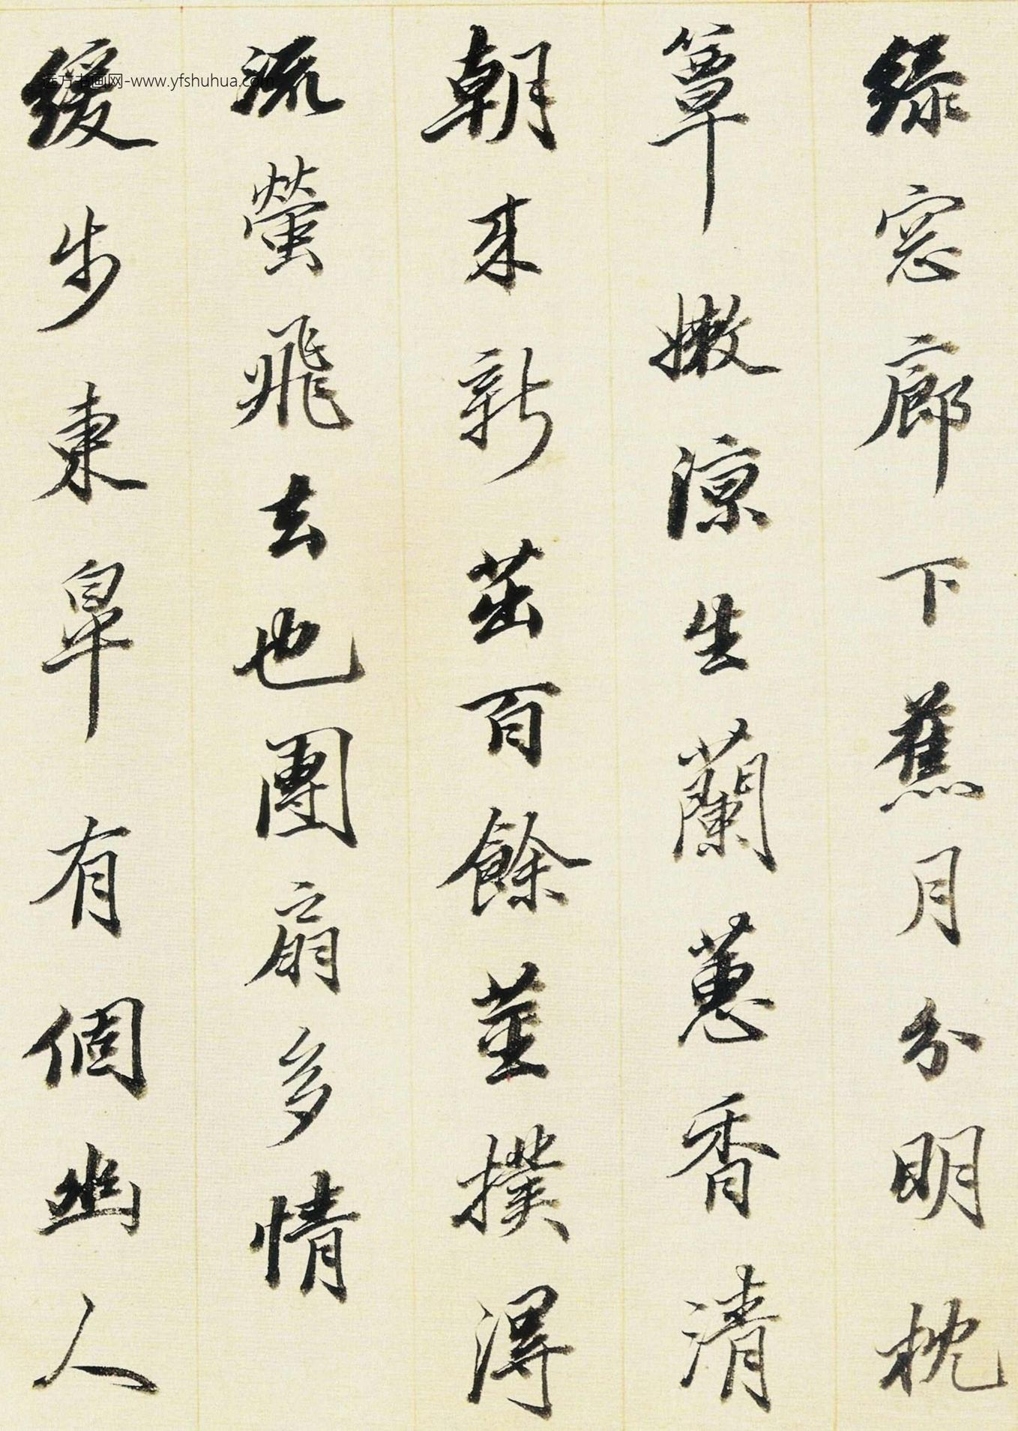 綠窓廊下蕉月分明枕
簟嫩涼生蘭蕙香清
朝來新茁百餘莖撲得
流螢飛去也團扇多情
緩步東皐有個幽人
东方书画网-www.yfshuhua.com